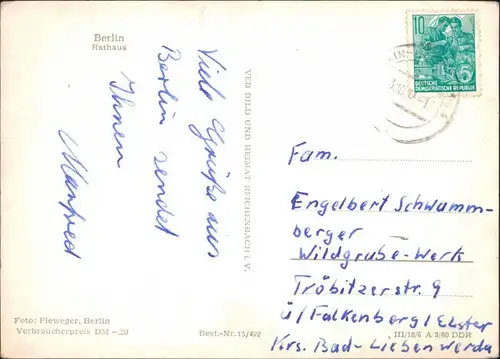 Berlin
Rathaus
Viele Grüße aus
Berlin sendet
Ihnen
Manfred
VEB BILD UND HEIMAT REICHENBACH I. V.
10
DEUTSCHE
DEMOKRATISCHE REPUBLIK
Fam.
Engelbert Schwamm-
berger
Wildgrube-Werk
Tröbitzerstr. 9
ü/Falkenberg/Elster
Krs. Bad-Liebenwerda
Foto: Fleweger, Berlin
Verbraucherpreis DM -,20
Best.-Nr. 15/492
III/18/6 A 3/60 DDR